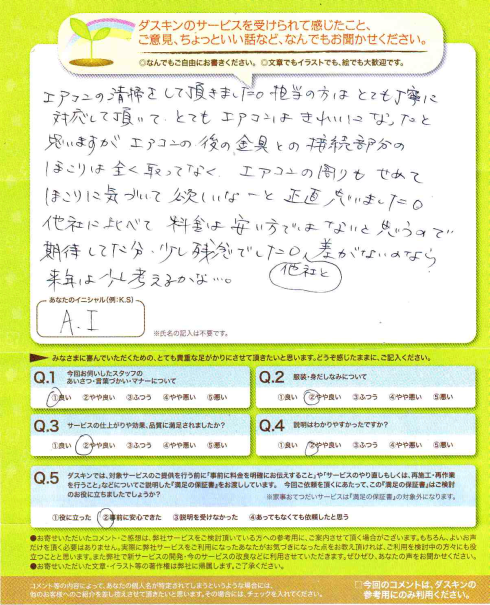 ダスキンのサービスを受けられて感じたこと、
ご意見、ちょっといい話など、なんでもお聞かせください。
◎なんでもご自由にお書きください。◎文章でもイラストでも、絵でも大歓迎です。
エアコンの清掃をして頂きました。担当の方はとても丁寧に
対応して頂いて、とてもエアコンはきれいになったと
思いますが エアコンの後の金具との接続部分の
ほこりは全く取ってなく、エアコンの周りもせめて
ほこりに気づいて欲しいなーと正直思いました。
他社に比べて 料金は安い方ではないと思うので
期待してた分、少し残念でした。差がないのなら
他社と
来年は少し考えるかな…。
あなたのイニシャル(例:K.S)
A.I
※氏名の記入は不要です。
みなさまに喜んでいただくための、とても貴重な足がかりにさせて頂きたいと思います。どうぞ感じたままに、ご記入ください。
Q.1 今回お伺いしたスタッフの
あいさつ・言葉づかい・マナーについて
①良い ②やや良い ③ふつう ④やや悪い ⑤悪い
Q.2 服装・身だしなみについて
①良い ②やや良い ③ふつう ④やや悪い ⑤悪い
Q.3 サービスの仕上がりや効果、品質に満足されましたか?
①良い ②やや良い ③ふつう ④やや悪い ⑤悪い
Q.4 説明はわかりやすかったですか?
①良い ②やや良い ③ふつう ④やや悪い ⑤悪い
Q.5 ダスキンでは、対象サービスのご提供を行う前に「事前に料金を明確にお伝えすること」や「サービスのやり直しもしくは、再施工・再作業
を行うこと」などについてご説明した「満足の保証書」をお渡ししています。 今回ご依頼を頂くにあたって、この「満足の保証書」はご検討
のお役に立ちましたでしょうか?
※家事おてつだいサービスは「満足の保証書」の対象外になります。
①役に立った ②事前に安心できた ③説明を受けなかった ④あってもなくても依頼したと思う
●お寄せいただいたコメント・ご感想は、弊社サービスをご検討頂いている方への参考用に、ご案内させて頂く場合がございます。もちろん、よいお声
だけを頂く必要はありません。実際に弊社サービスをご利用になったあなたがお気づきになった点をお教え頂ければ、ご利用を検討中の方々にも役
立つことと思います。また弊社で新サービスの開発・今のサービスの改良などに利用させていただきます。ぜひぜひ、あなたの声をお聞かせください。
●お寄せいただいた文章・イラスト等の著作権は弊社に帰属します。ご了承ください。
コメント等の内容によって、あなたの個人名が特定されてしまうというような場合には、
他のお客様へのご紹介を差し控えさせて頂きたいと思います。その場合には、チェックを入れてください。
□今回のコメントは、ダスキンの
参考用にのみご利用ください。